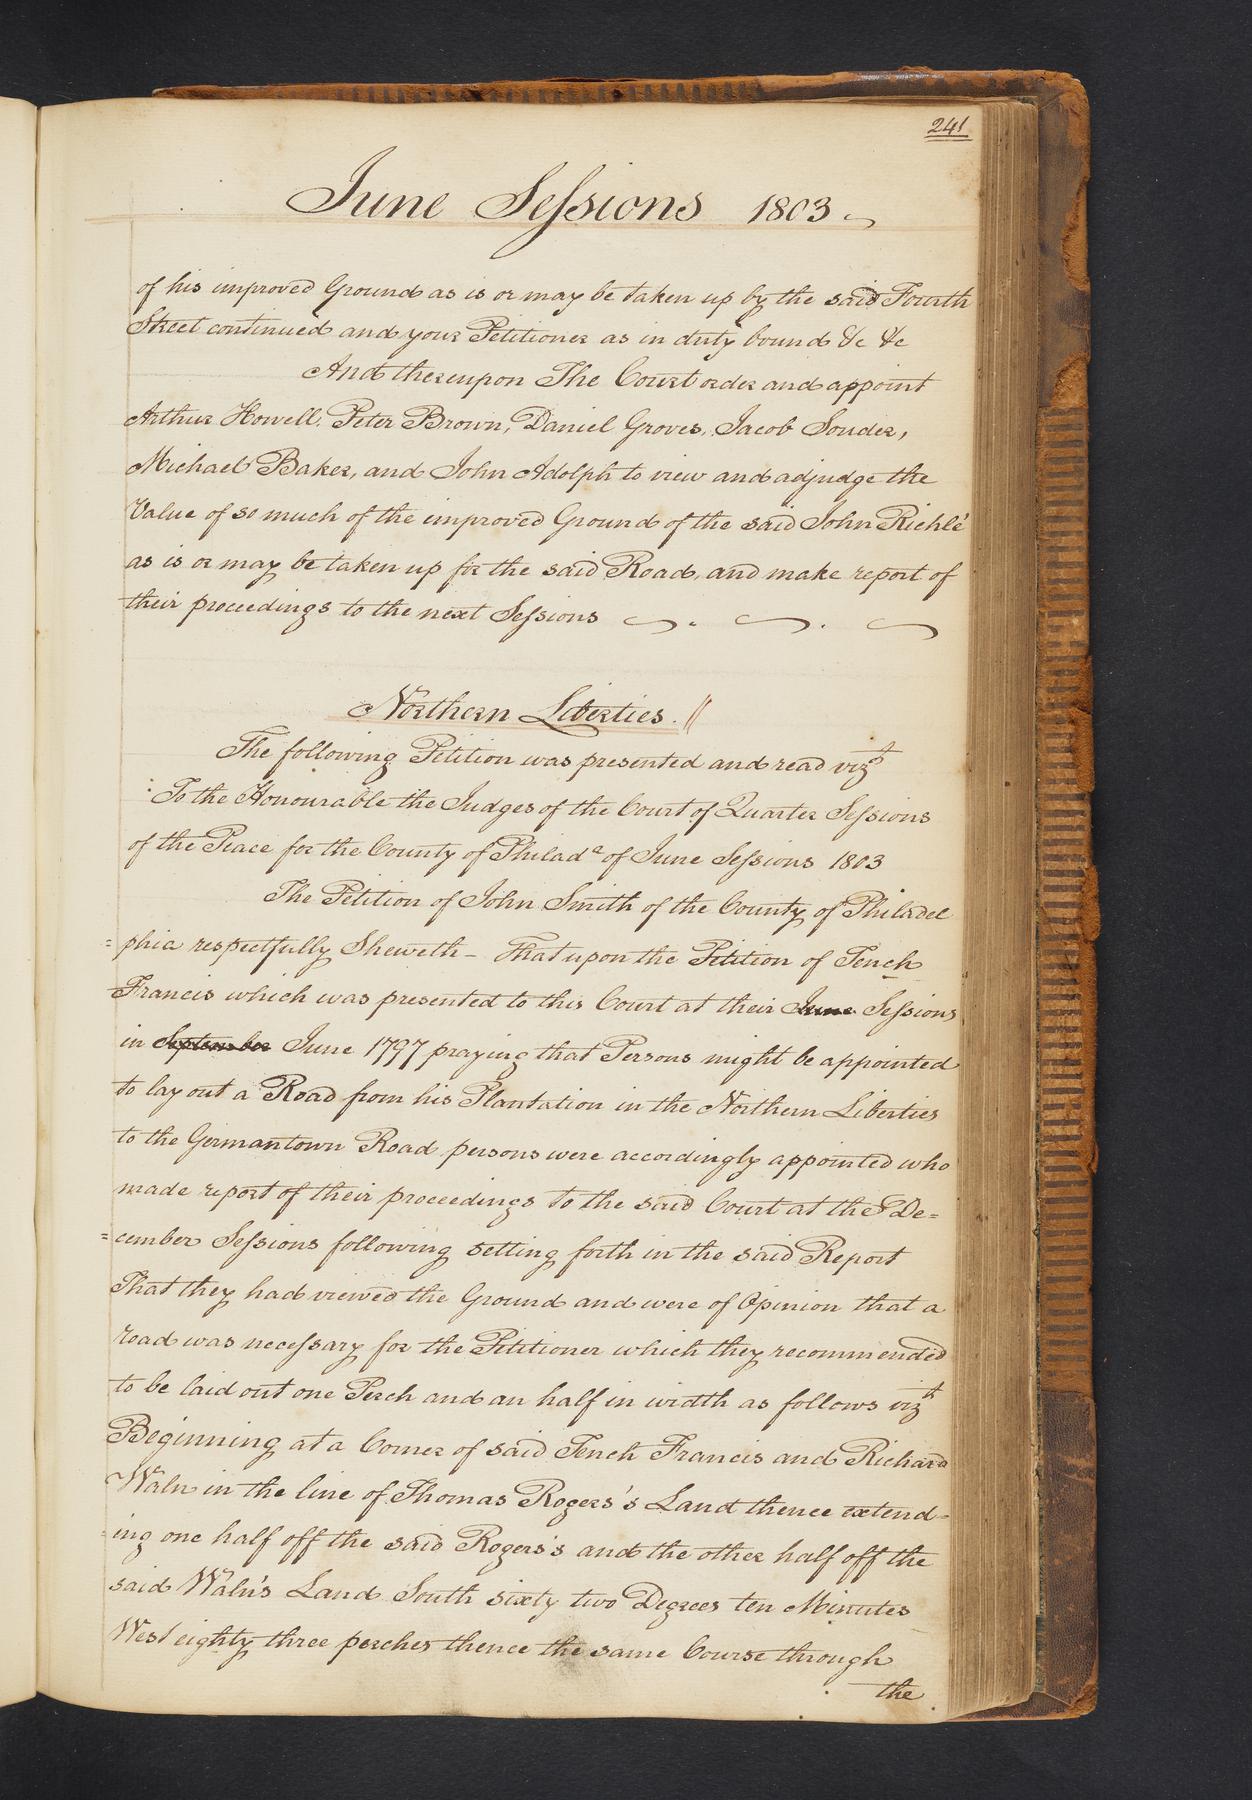 241
June Sessions 1803
of his improved Ground as is or may be taken up by the said Fourth
Street continued and your Petitioner as in duty bound &c &c
And thereupon The Court order and appoint
Arthur Howell, Peter Brown, Daniel Groves, Jacob Souder,
Michael Baker, and John Adolph to view and adjudge the
Value of so much of the improved Ground of the said John Riehlé
as is or may be taken up for the said Road, and make report of
their proceedings to the next Sessions
Northern Liberties.
The following Petition was presented and read vizt
To the Honourable the Judges of the Court of Quarter Sessions
of the Peace for the County of Philada of June Sessions 1803
The Petition of John Smith of the County of Philadel
=phia respectfully Sheweth – That upon the Petition of Tench
Francis which was presented to this Court at their June Sessions
in September June 1797 praying that Persons might be appointed
to lay out a Road from his Plantation in the Northern Liberties
to the Germantown Road persons were accordingly appointed who
made report of their proceedings to the said Court at the De=
=cember Sessions following setting forth in the said Report
That they had viewed the Ground and were of Opinion that a
road was necessary for the Petitioner which they recommended
to be laid out one Perch and an half in width as follows vizt
Beginning at a Corner of said Tench Francis and Richard
Waln in the line of Thomas Rogers's Land thence extend=
=ing one half off the said Rogers's and the other half off the
said Waln's Land South sixty two Degrees ten Minutes
West eighty three perches thence the same Course through
the